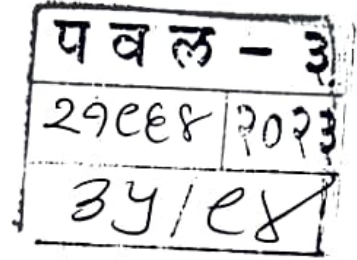 पवल - ३
२१९६४ २०२३
३५/९४